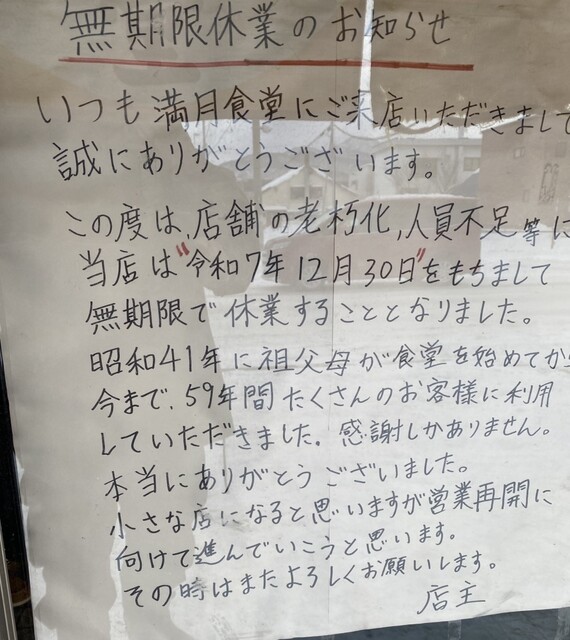 無期限休業のお知らせ
いつも満月食堂にご来店いただきまして
誠にありがとうございます。
この度は、店舗の老朽化,人員不足等に
当店は"令和7年12月30日"をもちまして
無期限で休業することとなりました。
昭和41年に祖父母が食堂を始めてから
今まで、59年間たくさんのお客様に利用
していただきました。感謝しかありません。
本当にありがとうございました。
小さな店になると思いますが営業再開に
向けて進んでいこうと思います。
その時はまたよろしくお願いします。
店主